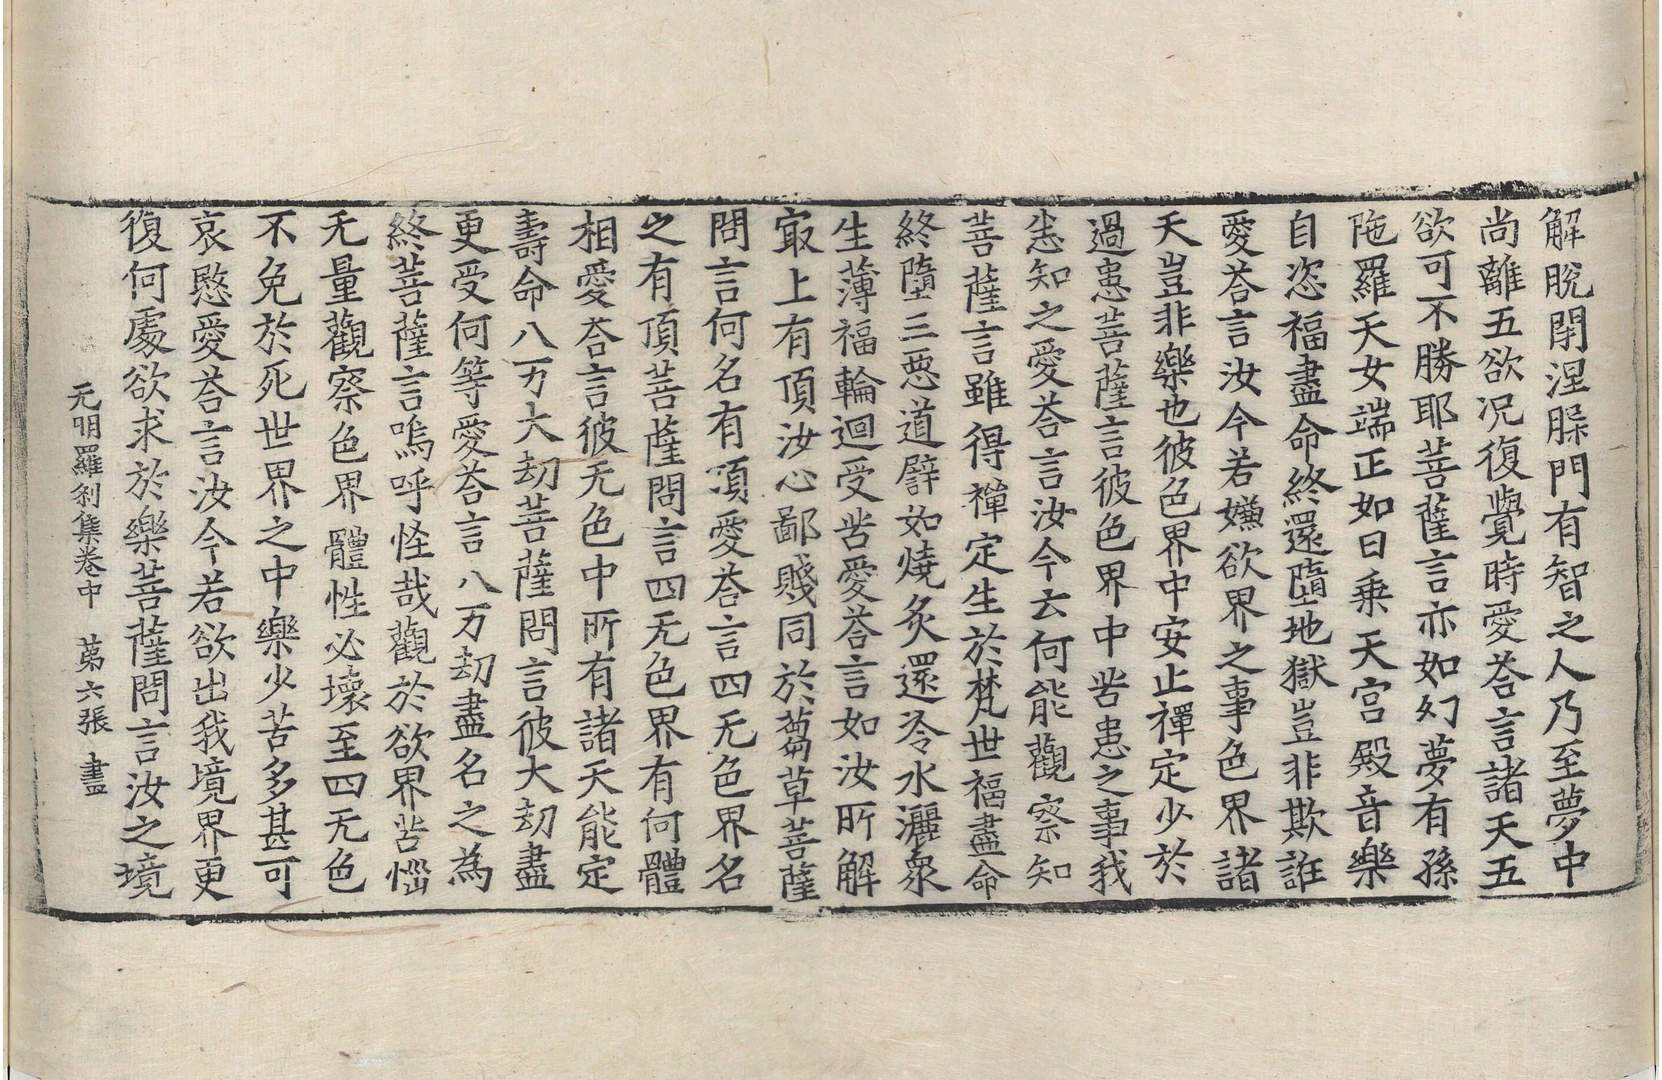 解脫閇涅槃門有智之人乃至夢中
尚離五欲况復覺時愛荅言諸天五
欲可不勝耶菩薩言亦如幻夢有孫
陁羅天女端正如日乗天宫殿音樂
自恣福盡命終還墮地獄豈非欺誑
愛荅言汝今若嫌欲界之事色界諸
天豈非樂也彼色界中安止禪定少於
過患菩薩言彼色界中苦患之事我
悉知之愛荅言汝今云何能觀察知
菩薩言雖得禪定生於梵世福盡命
終墮三惡道譬如燒炙還冷水灑衆
生薄福輪迴受苦愛荅言如汝所解
冣上有頂汝心鄙賤同於蒭草菩薩
問言何名有頂愛荅言四无色界名
之有頂菩薩問言四无色界有何體
相愛荅言彼无色中所有諸天能定
壽命八万大劫菩薩問言彼大劫盡
更受何等愛荅言八万劫盡名之為
終菩薩言嗚呼怪哉觀於欲界苦惱
无量觀察色界體性必壞至四无色
不免於死世界之中樂少苦多甚可
哀愍愛荅言汝今若欲出我境界更
復何處欲求於樂菩薩問言汝之境
无明羅刹集卷中 苐六張 畫